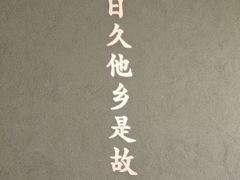 日久他乡是故